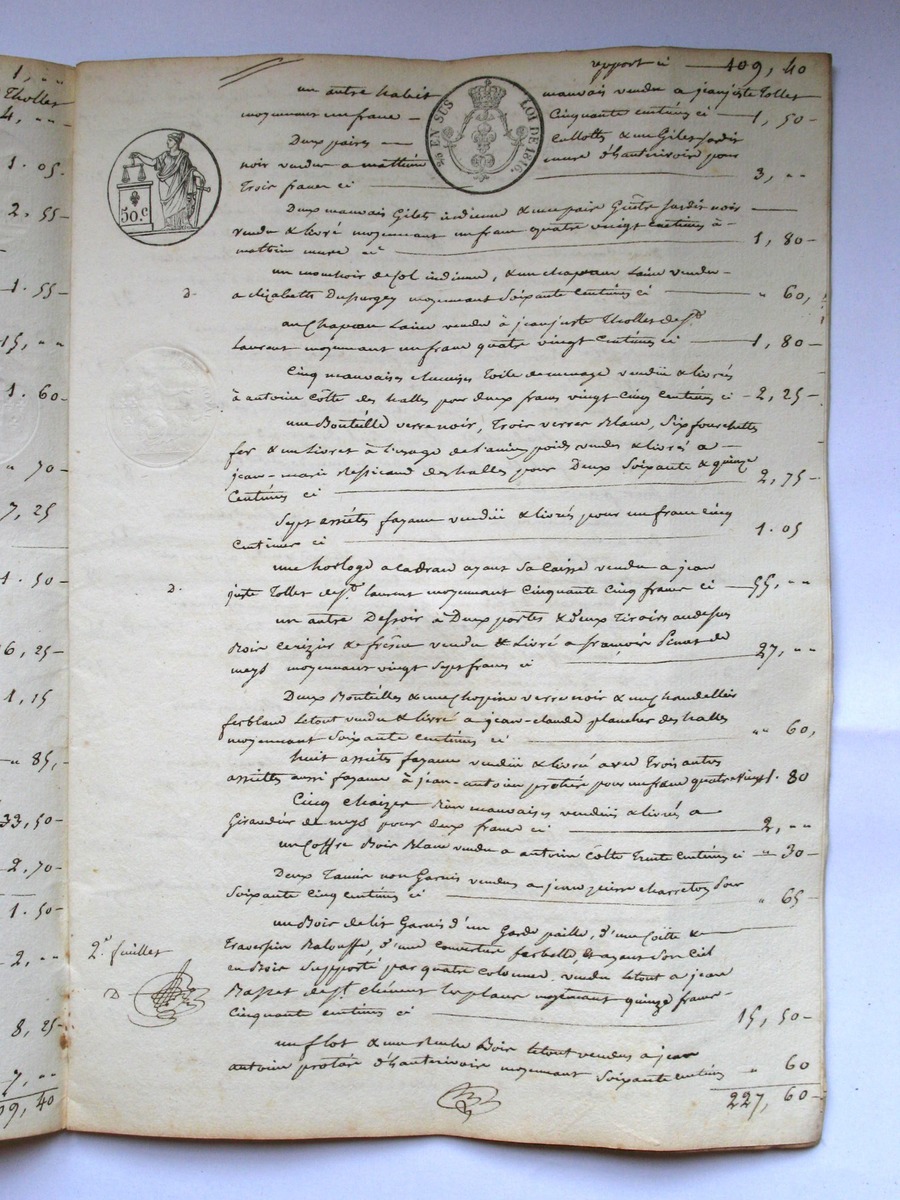 1, ""
Thollet
4, ""
1. 05.
2. 55
1. 55
15, ""
1. 60
" 70
7, 25
1. 50
6, 25
1, 15
" 85,
33, 50
2. 70
1. 50
2, ""
8, 25
7, ""
09, 40
50.c
EN SUS LOI DE 1816.
report ci 109, 40
un autre habit mauvais vendu a jean juste Tollet
moyennant un franc Cinquante centimes ci 1, 50
Deux paires culottes & un Gilet jardis
noir vendu a mathieu mure d'hauterivoire pour
Trois francs ci 3, ""
Deux mauvais Gilets indienne & une pair Guêtre jardis noir
vendu & livré moyennant un franc quatre vingt centimes à
mathieu mure ci 1, 80
un mouchoir de Col indienne, & un chapeau Laine vendu
D. a elizabeth moyennant Soixante centimes ci " 60,
un Chapeau Laine vendu à jean juste Thollet de St
Laurent moyennant un franc quatre vingt Centimes ci 1, 80
Cinq mauvaises chemises toile de menage vendu & livrés
à antoine Côte des halles pour deux francs vingt Cinq Centimes ci 2, 25
une Bouteille verre noir, Trois verres Blanc, Six fourchettes
fer & un livret à l'usage de vendus & livré a
jean-marie des halles pour Deux Soixante & quinze
Centimes ci 2, 75
Sept assiéts fayance vendu & livrés pour un franc cinq
centimes ci 1. 05
une horloge a cadran ayant Sa Caisse vendu a jean
D. juste Tollet de St laurent moyennant Cinquante Cinq francs ci 55, ""
un autre Dessoir à Deux portes & deux Tiroirs au desus
Bois cerizier & frêne vendu & Livré a françois de
meys moyennant vingt Sept francs ci 27, ""
Deux Bouteilles & une Chopine verre noir & un Chandellier
ferblanc le tout vendu & livré a jean-claude plancher des halles
moyennant Soixante centimes ci "" 60,
huit assiéts fayance vendu & livré avec Trois autres
assiéttes aussi fayance à jean-antoine protière pour un franc quatre vingt 1. 80
Cinq chaizes mauvaises vendus & livrés a
de meys pour deux francs ci 2, ""
un Coffre Bois Blanc vendu a antoine Côte Trente Centimes ci "" 30
Deux Tamis non Garnis vendus a jean pierre charreton
Soixante Cinq centimes ci " 65
un Bois de lit Garnis d'un Garde paille, d'une Coitte &
2e. feuillet Traversin Balouffe, d'une couverture & ayant Son Ciel
en Bois Supporté par quatre colonnes vendu le tout a jean
D Basset de St clément les places moyennant quinze francs
Cinquante centimes ci 15, 50
un flot & une Bois le tout vendus a jean
antoine d'hauterivoire moyennant Soixante centimes " 60
227, 60